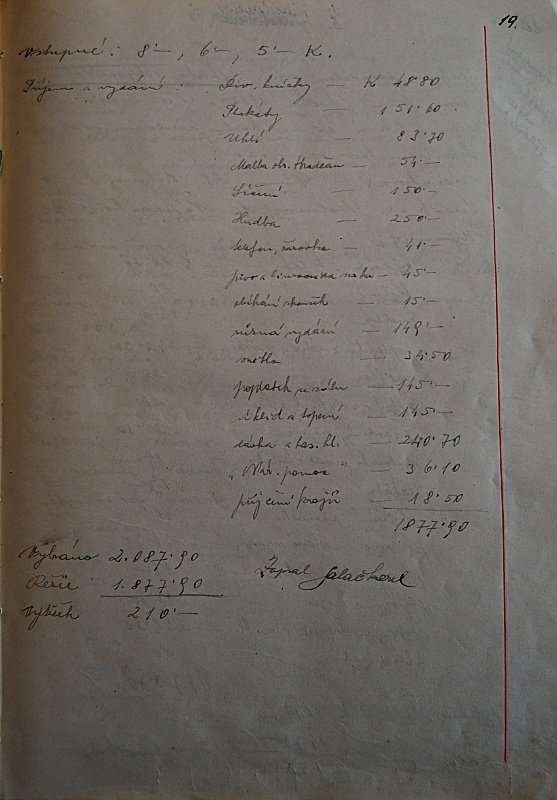 19.
Vstupné: 8·—, 6·—, 5·— K.
Příjem a vydání: Div. knížky — K 48·80
Plakády — 151·60
Uhlí — 83·70
Malba ob. Hradčan — 54·—
Líčení — 150·—
Hudba — 250·—
telefon, žárovka — 41·—
pivo a limonáda — 45·—
— 15·—
různá vydání — 149·—
světlo — 34·50
poplatek — 145·—
úklid a topení — 145·—
dávka a has. hl. — 240·70
„Nár. pomoc" — 36·10
půjčení krojů 18·50
1877·90
Vybráno 2.087·90
Režie 1.877·90
Výtěžek 210·—
Zapsal